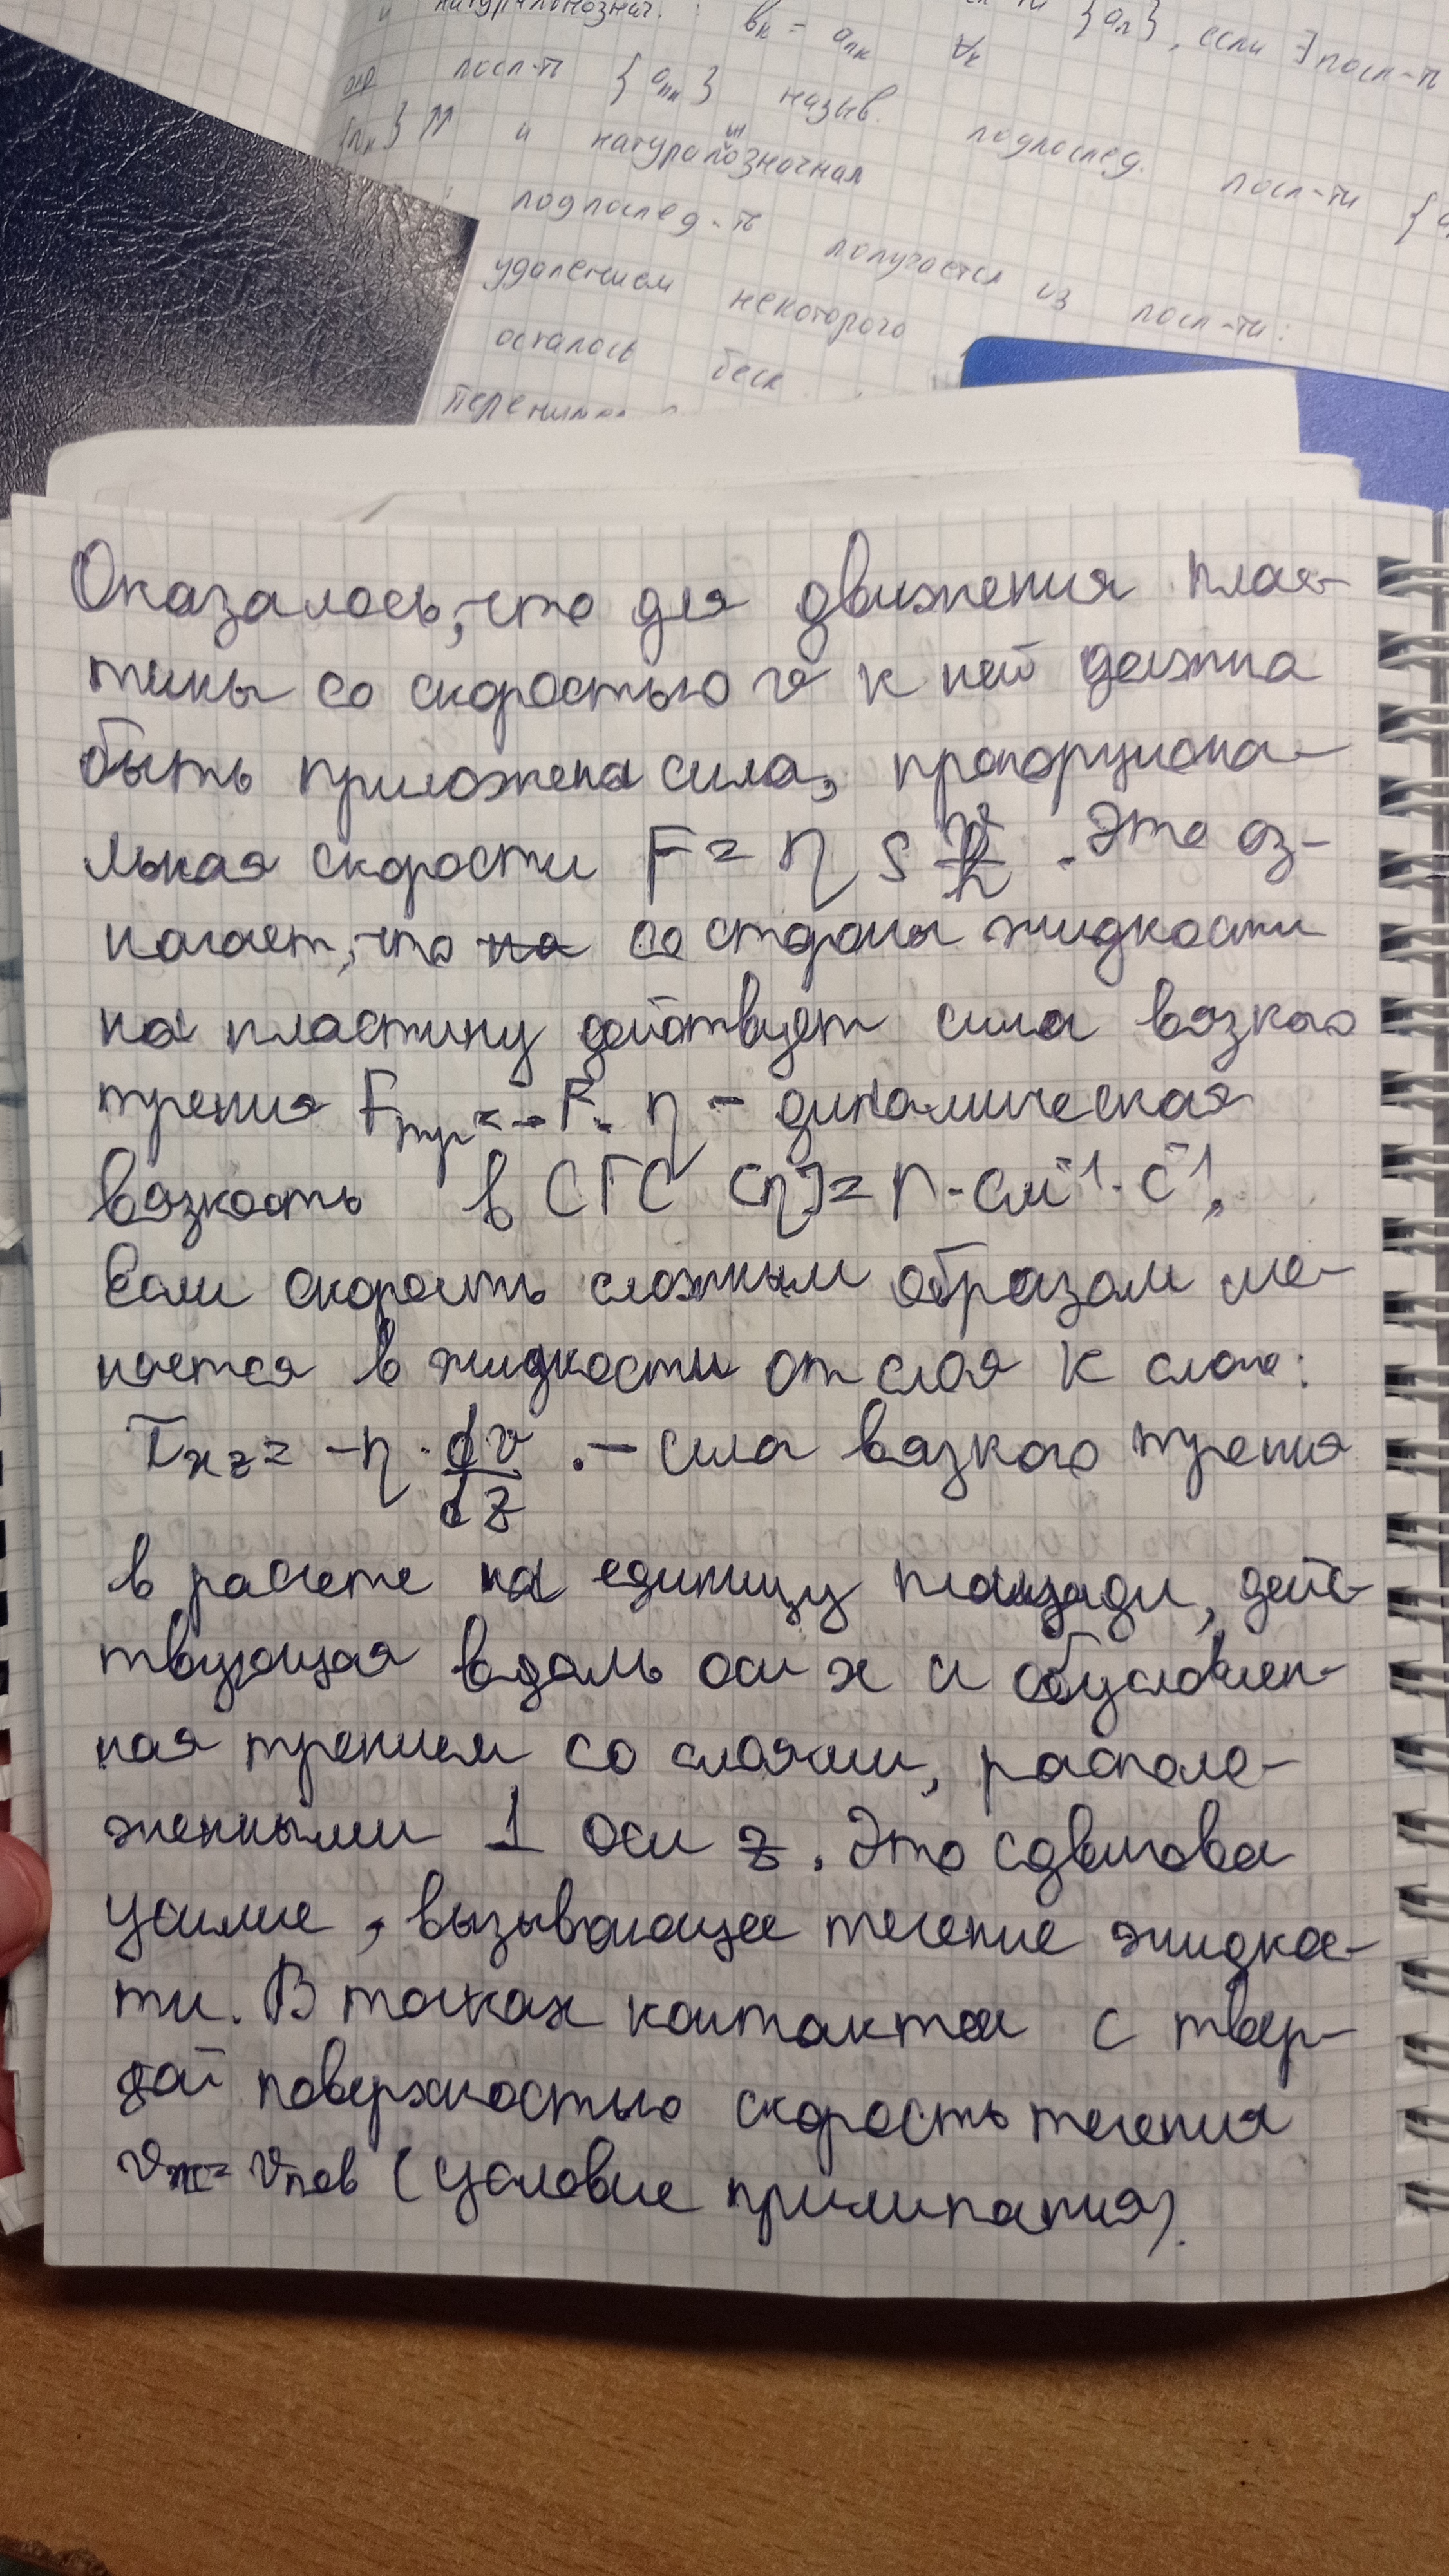 и натуральнознач. : bₖ = aₙₖ ∀k {aₙ}, если ∃ посл-ть
опр посл-ть {aₙₖ} назыв. подпослед. посл-ти {a
{nₖ} ⇈ и натуральнозначная
подпослед-ть получается из посл-ти:
удалением некоторого
осталось беск
Оказалось, что для движения плас-
тины со скоростью v к ней должна
быть приложена сила, пропорциона-
льная скорости F = η S v/h. Это оз-
начает, что со стороны жидкости
на пластину действует сила вязкого
трения Fтр = -F. η - динамическая
вязкость в СГС [η] = г·см⁻¹·с⁻¹.
Если скорость сложным образом ме-
няется в жидкости от слоя к слою:
τxz = -η · dv/dz. - сила вязкого трения
в расчете на единицу площади, дейс-
твующая вдоль оси x и обусловлен-
ная трением со слоями, располо-
женными ⊥ оси z. Это сдвигова
усилие, вызывающее течение жидкос-
ти. В точках контакта с твер-
дой поверхностью скорость течения
vж = vпов (условие прилипания).